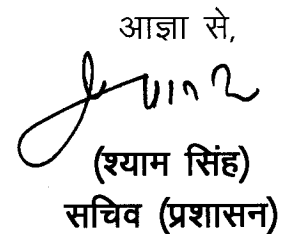 आज्ञा से,
(श्याम सिंह)
सचिव (प्रशासन)